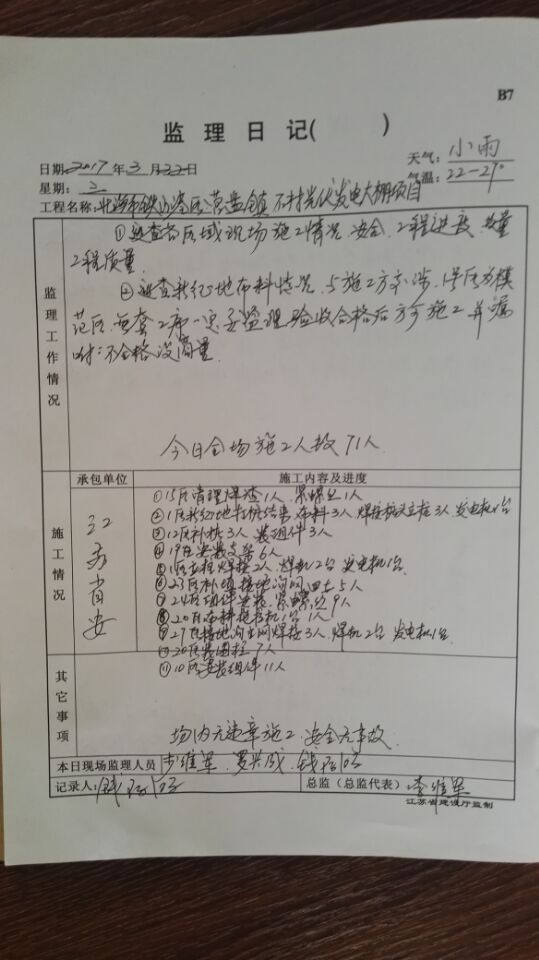 B7
监 理 日 记( )
日期:2017年3月22日
天气: 小雨
星期: 三
气温: 22-29°
工程名称: 北海市铁山港区营盘镇 不村光伏发电大棚项目
监理工作情况
①巡查各区域现场施工情况、安全、工程进度、质量
工程质量.
②巡查新征地布料情况.与施工方交涉,1号区为模
范区,每套工序一定要监理验收合格后方可施工并嘱
咐:不合格没商量.
今日全场施工人数71人.
承包单位
施工内容及进度
施工情况
江苏省安
①15区清理焊渣1人、紧螺丝1人
②1区新征地打桩结束 布料3人、焊接 3人、发电机1台
③12区补桩3人 装组件3人
④19区安装支架6人
⑤1区立柱焊接2人、焊机2台 发电机1台
⑥23区补填接地沟网回土5人
⑦24区组件安装、紧螺丝9人
⑧20区 1台1人
⑨27区接地沟主网焊接3人、焊机2台 发电机1台
⑩20区装 7人
⑪10区安装组件11人
其它事项
场内无违章施工、安全无事故.
本日现场监理人员 步维军、罗兴成、钱
记录人: 钱
总监(总监代表): 李维军
江苏省建设厅监制